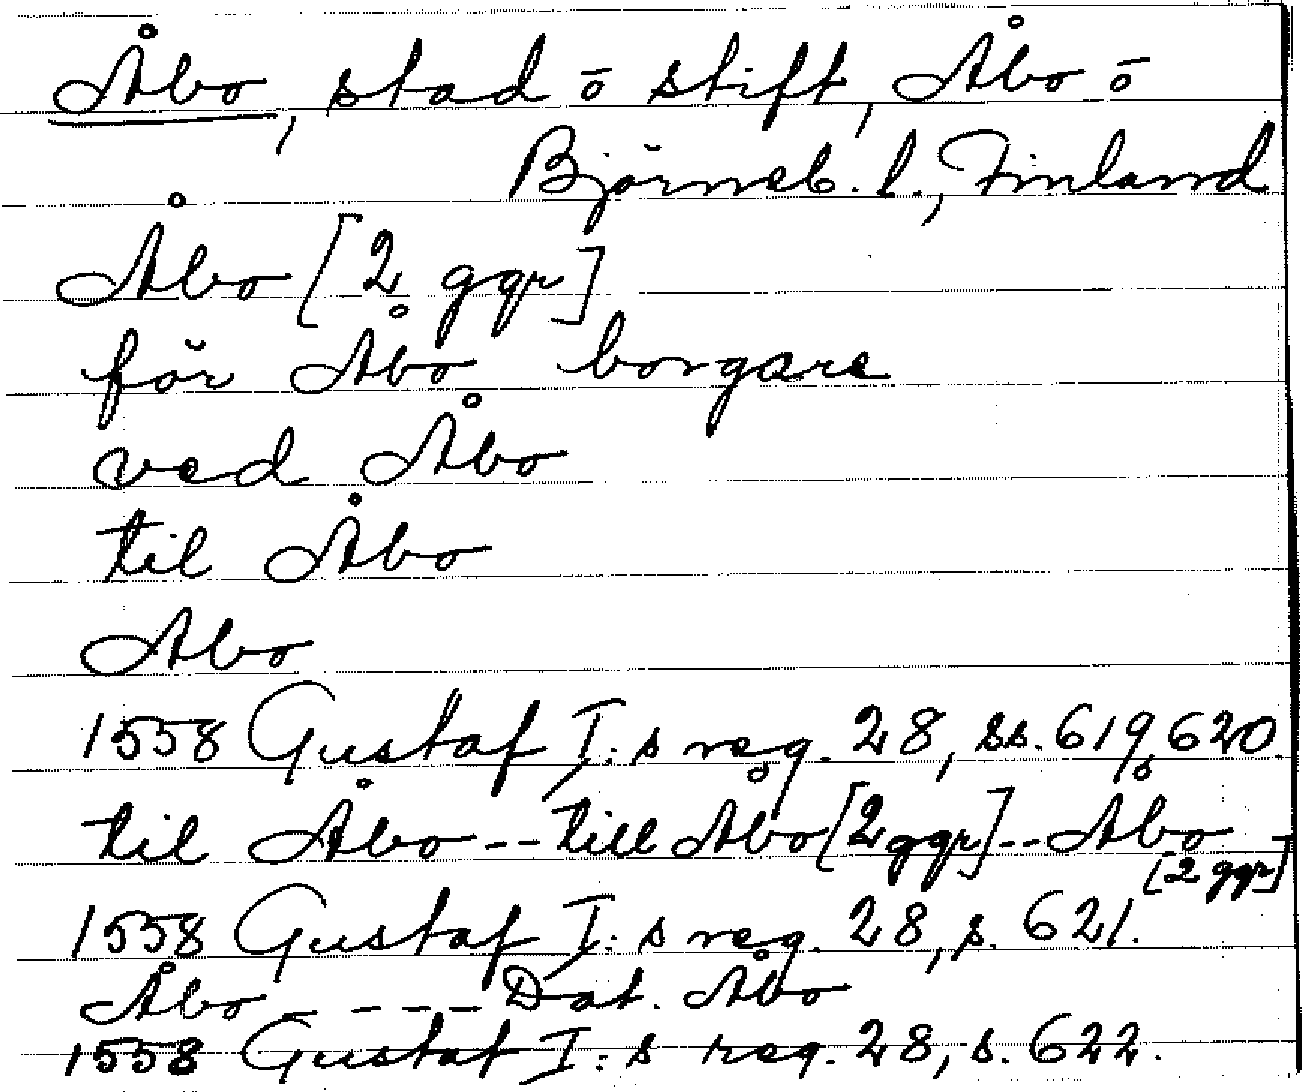 Åbo, stad ō stift, Åbo ō
Björneb. l., Finland
Åbo [2 ggr]
för Åbo borgare
ved Åbo
til Åbo
Abo
1558 Gustaf I:s reg. 28, ss. 619, 620.
til Åbo -- till Åbo [2 ggr] -- Åbo -
[2 ggr]
1558 Gustaf I:s reg. 28, s. 621.
Åbo ---- Dat. Åbo
1558 Gustaf I:s reg. 28, s. 622.